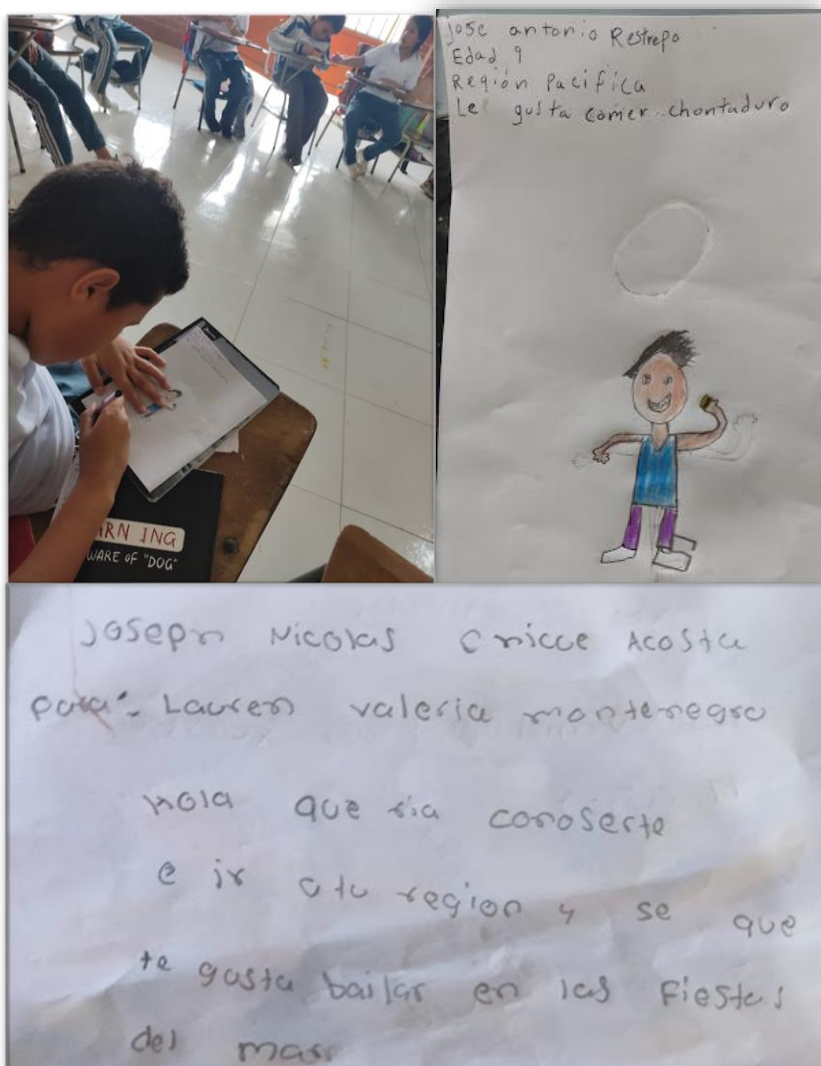 RN ING
WARE OF "DOG"
Jose antonio Restrepo
Edad 9
Región Pacifica
Le gusta comer chontaduro
Joseph Nicolas Acosta
para: Lauren valeria montenegro
Hola que ria conoserte
e ir a tu region y se que
te gusta bailar en las Fiestas
del mar